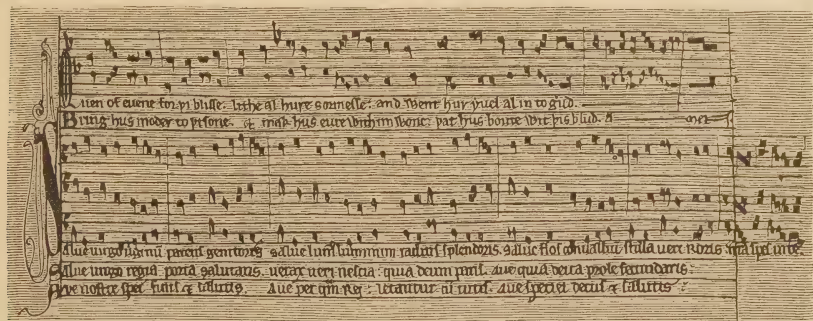 Quen of euene for þi blisse. lithe al hure sornesse: and Went hur yuel al in to god.
Bring hus moder to þi sone. & mak hus eure With im Wone: þat hus boute Wit þis blud. A men
Salue uirgo uirginū parens genitoris. salue lumen luminum radius splendoris. salue flos conuallium stilla ueri roris. nostra spes in te.
Salue uirgo regia porta salutaris. uerax ueri nescia: quia deum paris. Aue quia deica prole fecundaris:
Aue nostre spei finis & salutis. Aue per quam rei: letantur cū tutis. aue speciei decus & salutis: